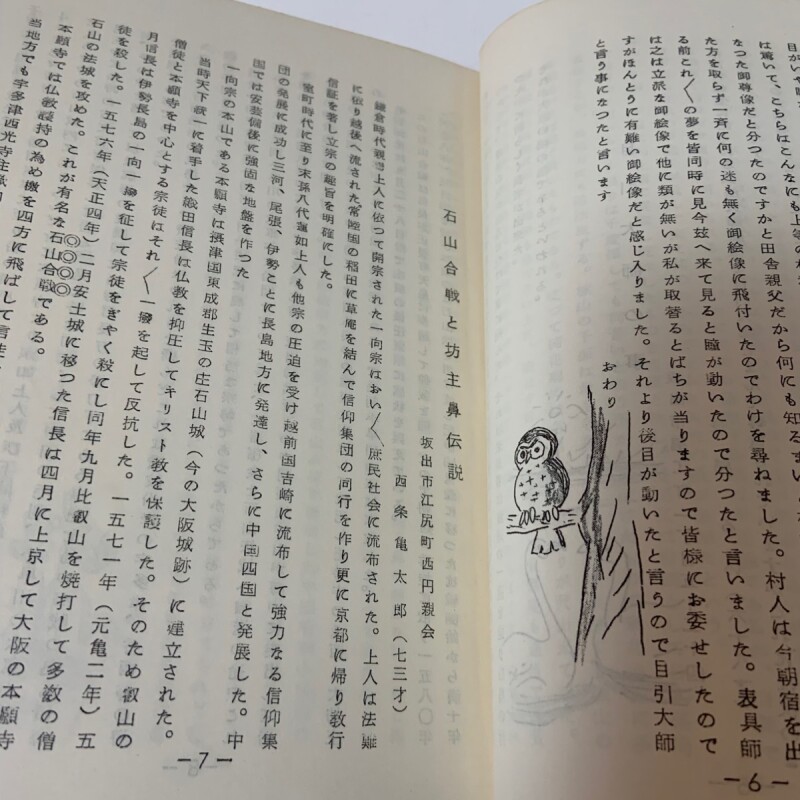 は驚いて、こちらはこんなにも上等の
なつた御尊像だと分つたのですかと田舎親父だから何にも知るまい
た方を取らず一斉に何の迷も無く御絵像に飛付いたのでわけを尋ねました。村人は今朝宿を出
る前これ〱の夢を皆同時に見今玆へ来て見ると瞳が動いたので分つたと言いました。表具師
は之は立派な御絵像で他に類が無いが私が取替るとばちが当りますので皆様にお委せしたので
すがほんとうに有難い御絵像だと感じ入りました。それより後目が動いたと言うので目引大師
と言う事になつたと言います
おわり
—6—
石山合戦と坊主鼻伝説
坂出市江尻町西円親会
西条亀太郎(七三才)
鎌倉時代親き上人に依つて開宗された一向宗はおい〱庶民社会に流布された。上人は法難
に依り越後へ流された常陸国の稲田に草庵を結んで信仰集団の同行を作り更に京都に帰り教行
信証を著し立宗の趣旨を明確にした。
室町時代に至り末孫八代蓮如上人も他宗の圧迫を受け越前国吉崎に流布して強力なる信仰集
団の発展に成功し三河、尾張、伊勢ことに長島地方に発達し、さらに中国四国と発展した。中
国では安芸備後に強固な地盤を作つた
一向宗の本山である本願寺は摂津国東成郡生玉の庄石山城(今の大阪城跡)に建立された。
当時天下統一に着手した織田信長は仏教を抑圧してキリスト教を保護した。そのため叡山の
僧徒と本願寺を中心とする宗徒はそれ〱一揆を起して反抗した。一五七一年(元亀二年)五
月信長は伊勢長島の一向一揆を征して宗徒をぎやく殺にし同年九月比叡山を焼打して多数の僧
徒を殺した。一五七六年(天正四年)二月安土城に移つた信長は四月に上京して大阪の本願寺
石山の法城を攻めた。これが有名な石山合戦である。
◎◎◎◎
本願寺では仏教護持の為め檄を四方に飛ばして信徒
当地方でも宇多津西光寺住職
—7—